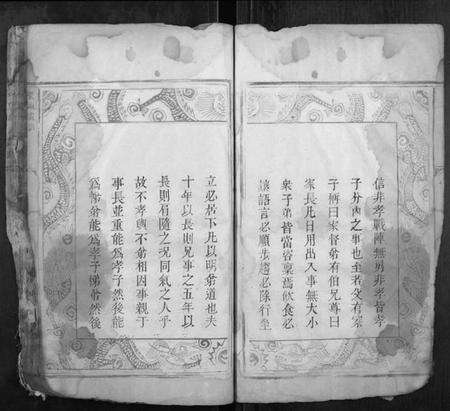 信非孝戰陣無勇非孝皆孝
子分內之事也至者父有冢
子稱曰家督弟有伯兄尊曰
家長凡日用出入事無大小
眾子弟皆當咨稟焉飲食必
讓語言必順步趨必徐行坐
立必居下凡以明弟道也夫
十年以長則兄事之五年以
長則肩隨之況同氣之人乎
故不孝與不弟相因事親于
事長並重能為孝子然後能
為悌弟能為孝子悌弟然後